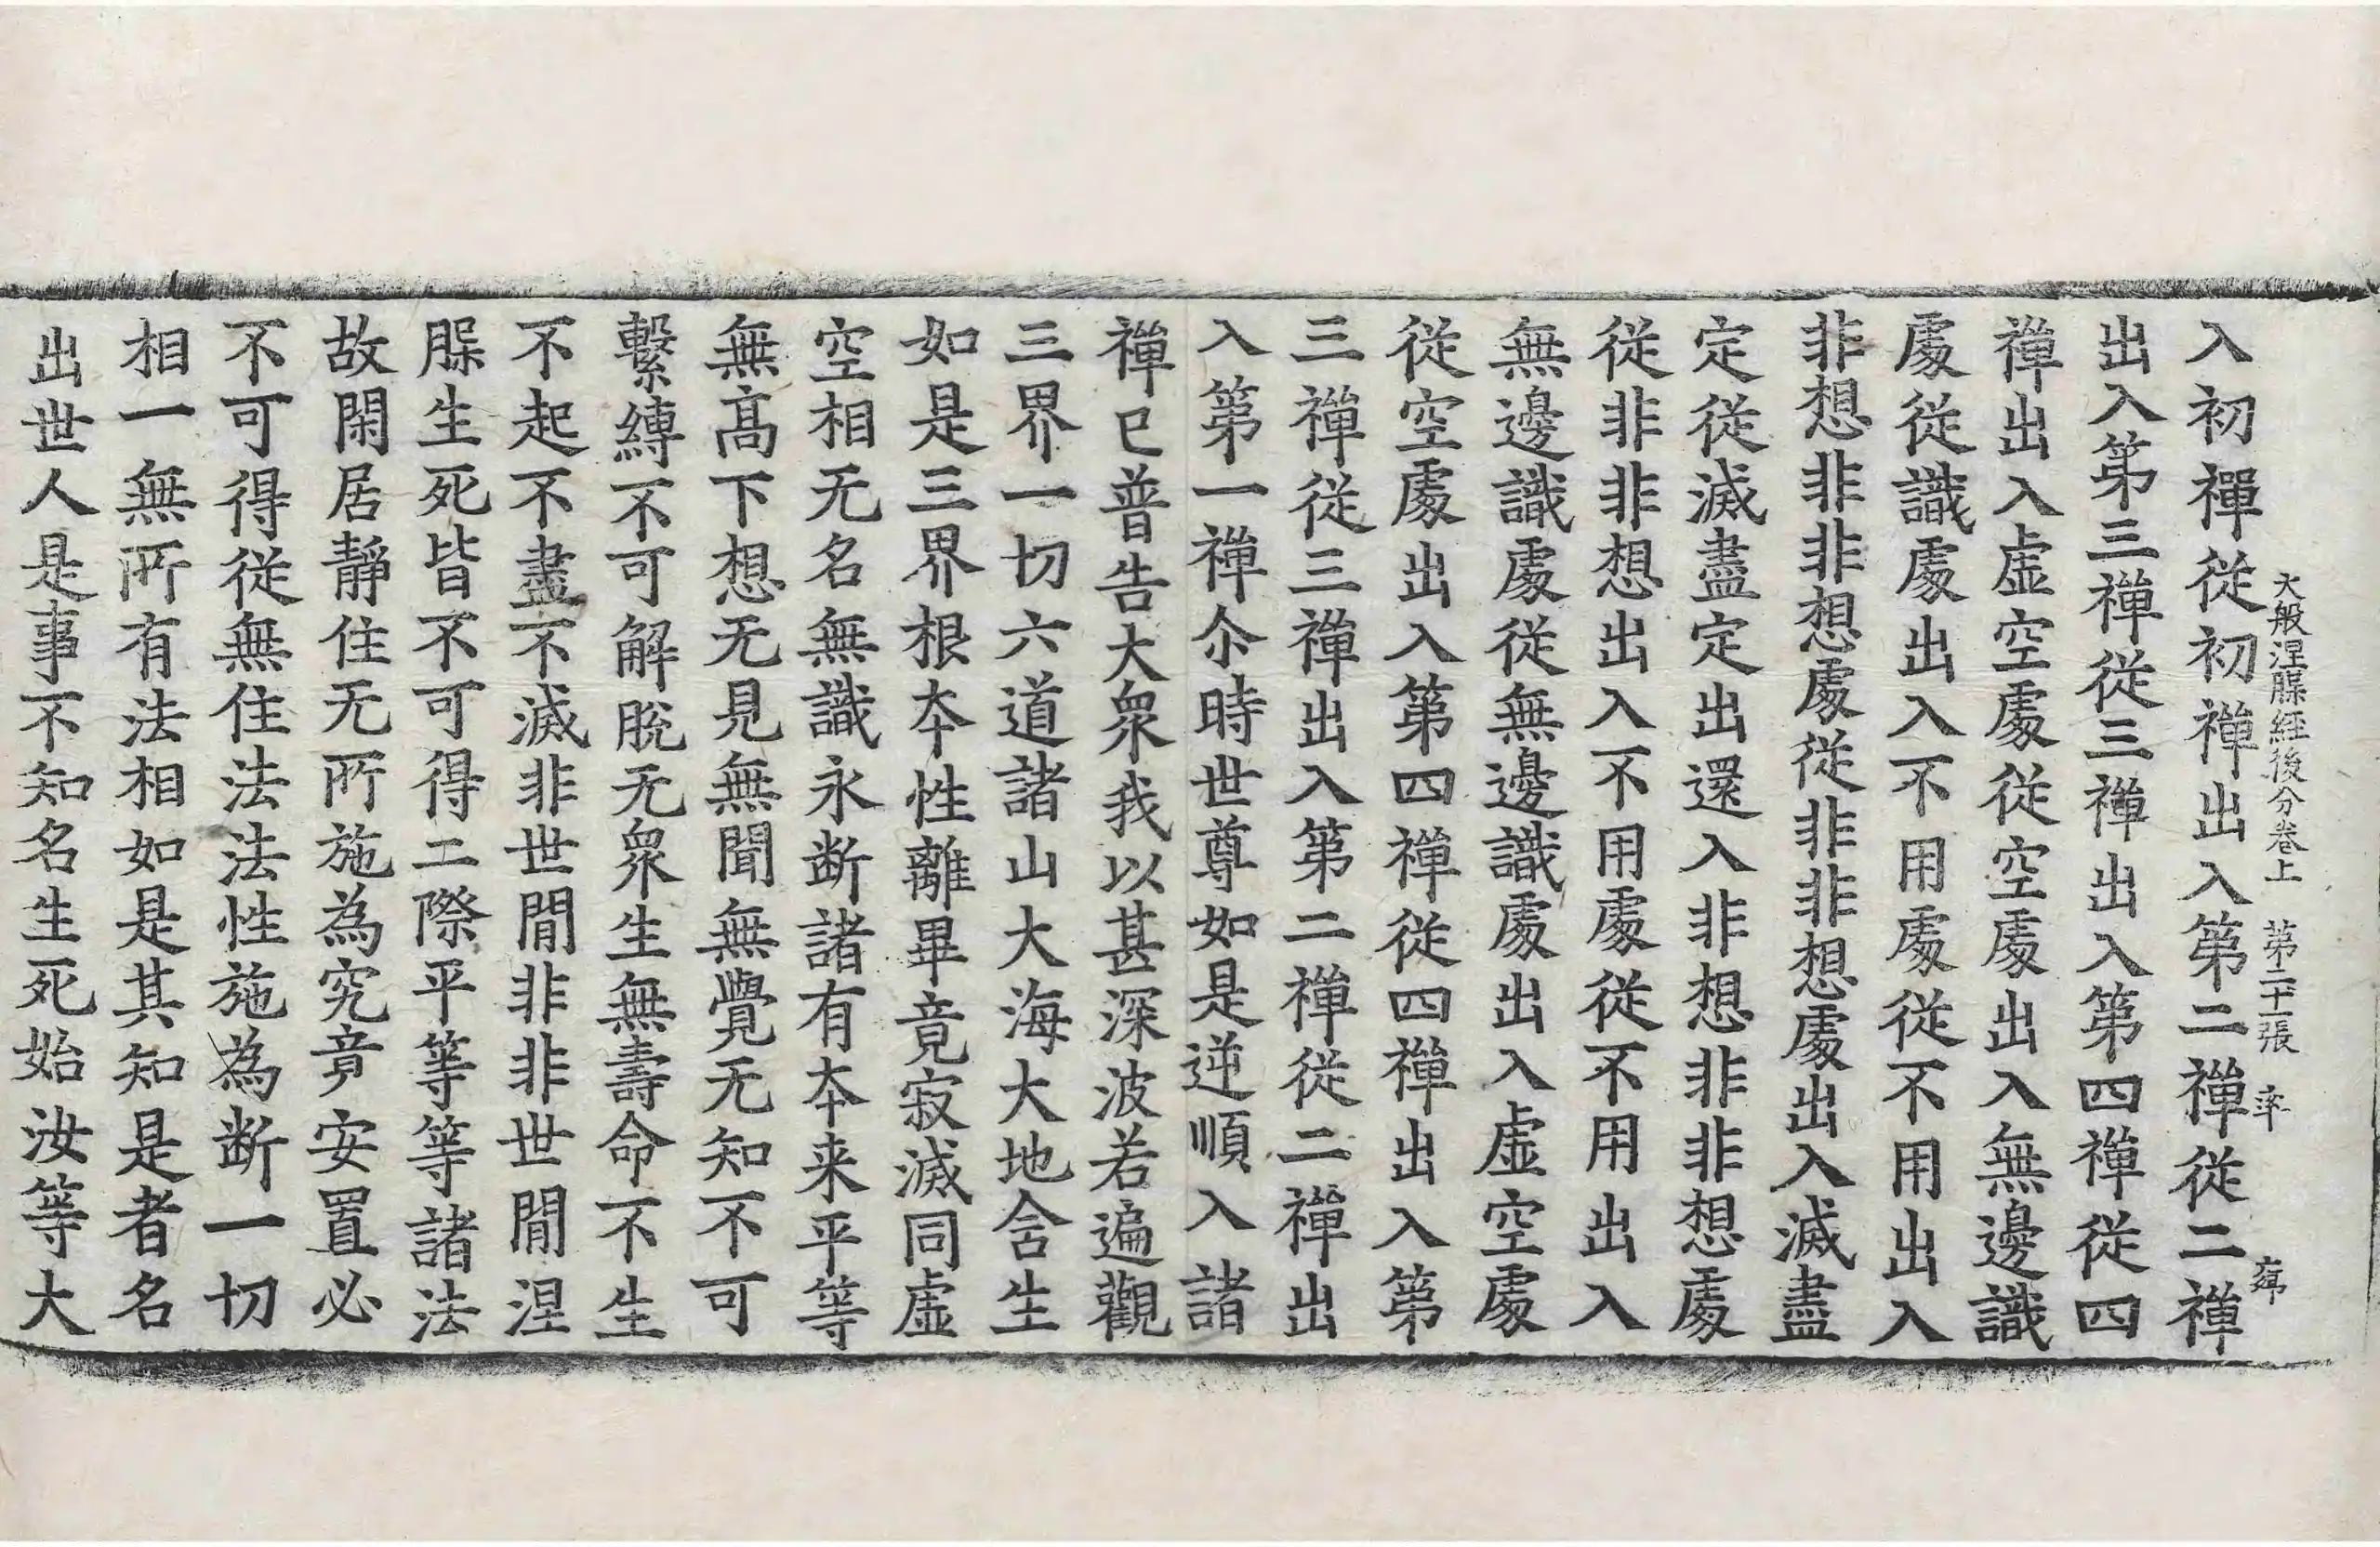 大般涅槃經後分卷上 第二十一張 率
入初禪從初禪出入第二禪從二禪
出入第三禪從三禪出入第四禪從四
禪出入虛空處從空處出入無邊識
處從識處出入不用處從不用出入
非想非非想處從非非想處出入滅盡
定從滅盡定出還入非想非非想處
從非非想出入不用處從不用出入
無邊識處從無邊識處出入虛空處
從空處出入第四禪從四禪出入第
三禪從三禪出入第二禪從二禪出
入第一禪尒時世尊如是逆順入諸
禪已普告大衆我以甚深波若遍觀
三界一切六道諸山大海大地含生
如是三界根本性離畢竟寂滅同虛
空相无名無識永斷諸有本来平等
無高下想无見無聞無覺无知不可
繫縛不可解脫无衆生無壽命不生
不起不盡不滅非世閒非非世閒涅
槃生死皆不可得二際平等等諸法
故閑居靜住无所施為究竟安置必
不可得從無住法法性施為斷一切
相一無所有法相如是其知是者名
出世人是事不知名生死始汝等大